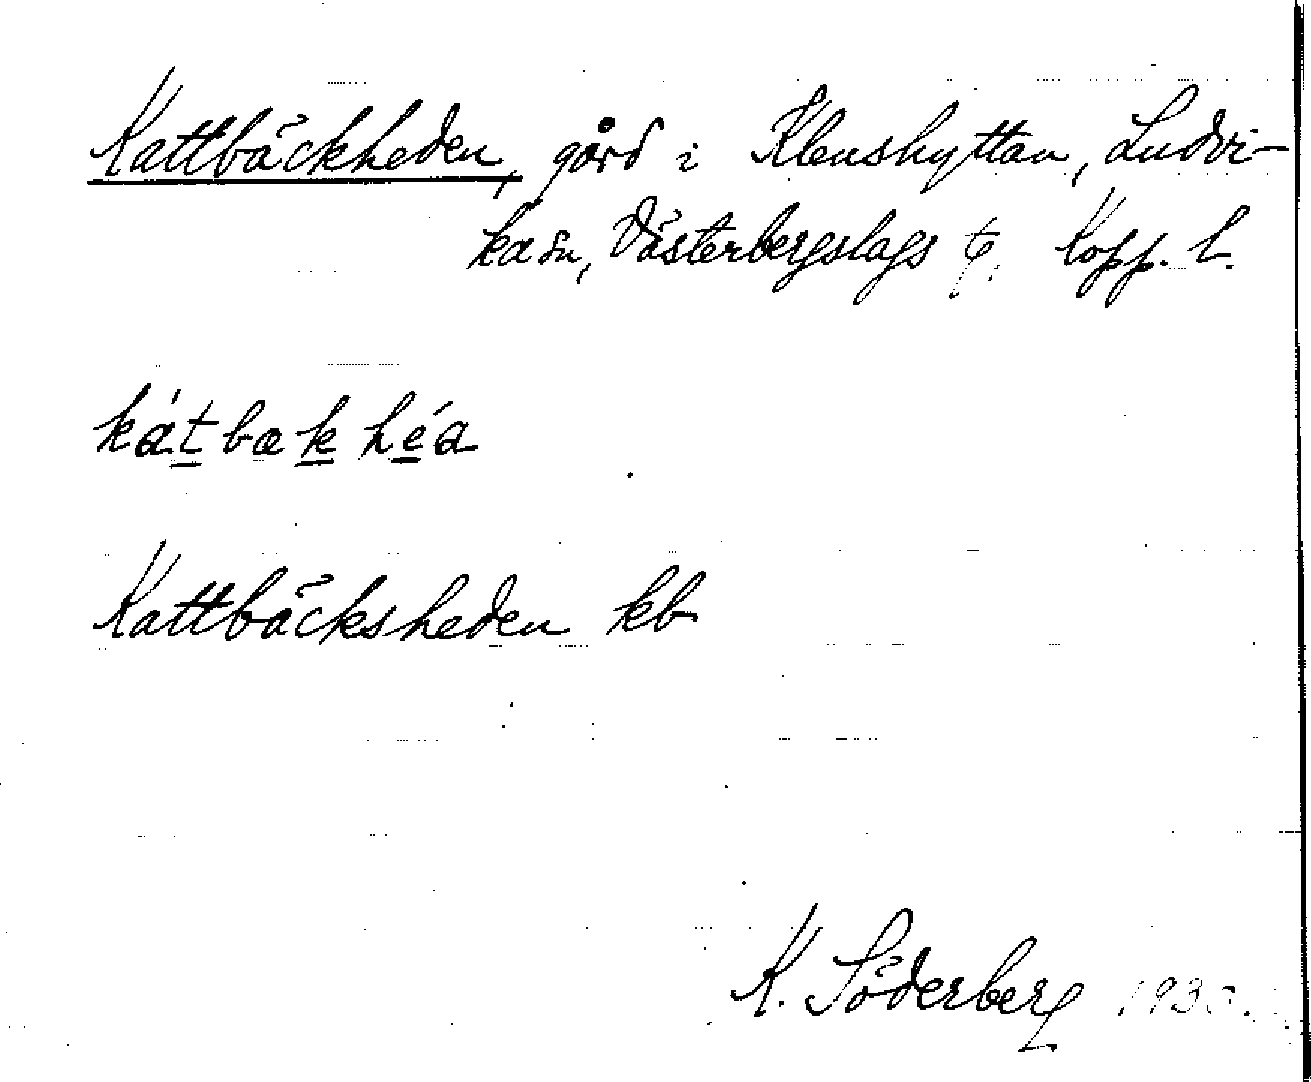 Kattbäckheden, gård i Klenshyttan, Ludvi-
ka sn, Västerbergslags tg. Kopp. l.
kátbækhéa
Kattbäcksheden kb
K. Söderberg